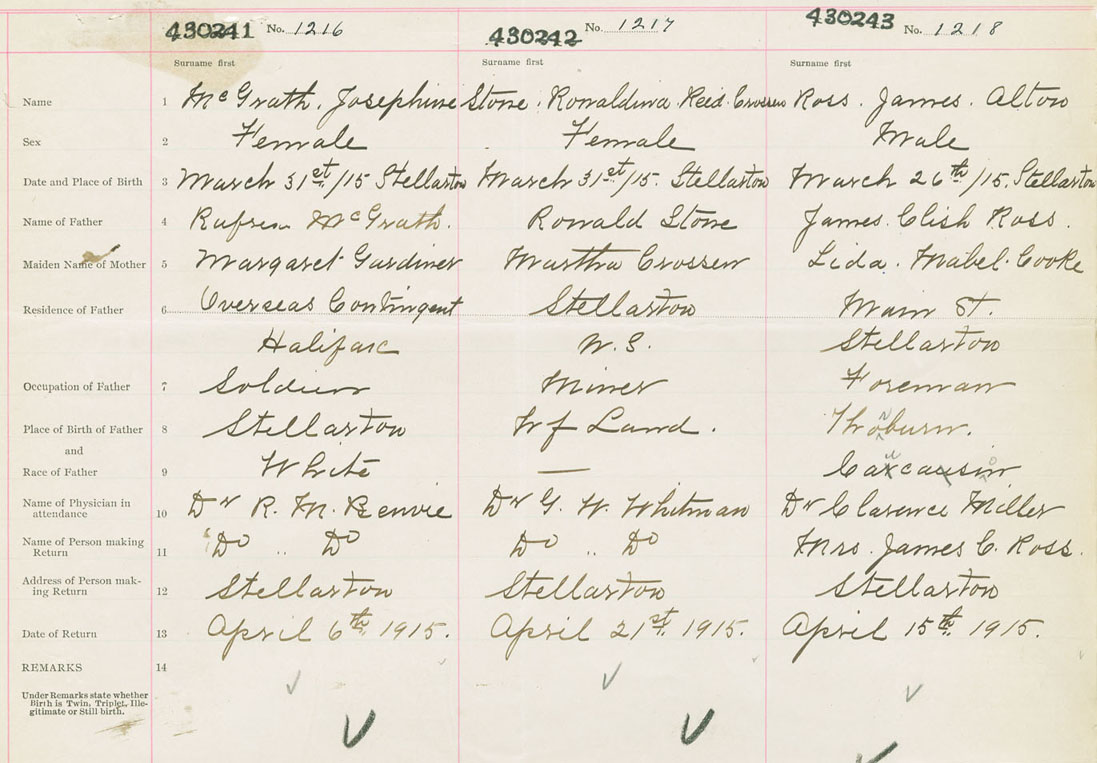 430241 No. 1216 430242 No. 1217 430243 No. 1218
Surname first Surname first Surname first
Name 1 McGrath, Josephine Stone, Ronaldina Reid Crossen Ross. James. Alton
Sex 2 Female Female Male
Date and Place of Birth 3 March 31st/15 Stellarton March 31st/15. Stellarton March 26th/15. Stellarton
Name of Father 4 McGrath. Ronald Stone James. Clish Ross.
Maiden Name of Mother 5 Margaret Gardiner Martha Crossen Lida. Mabel. Cooke
Residence of Father 6 Overseas Contingent Stellarton Main St.
Halifax N.S. Stellarton
Occupation of Father 7 Soldier Miner Foreman
Place of Birth of Father 8 Stellarton Nf Land. Thoburn.
and
Race of Father 9 White —
Name of Physician in
attendance 10 Dr R. M. Benvie Dr G. W. Whitman Dr Clarence Miller
Name of Person making
Return 11 Do " Do Do " Do Mrs. James C. Ross.
Address of Person mak-
ing Return 12 Stellarton Stellarton Stellarton
Date of Return 13 April 6th. 1915. April 21st. 1915. April 15th. 1915.
REMARKS 14
Under Remarks state whether
Birth is Twin, Triplet, Ille-
gitimate or Still birth.